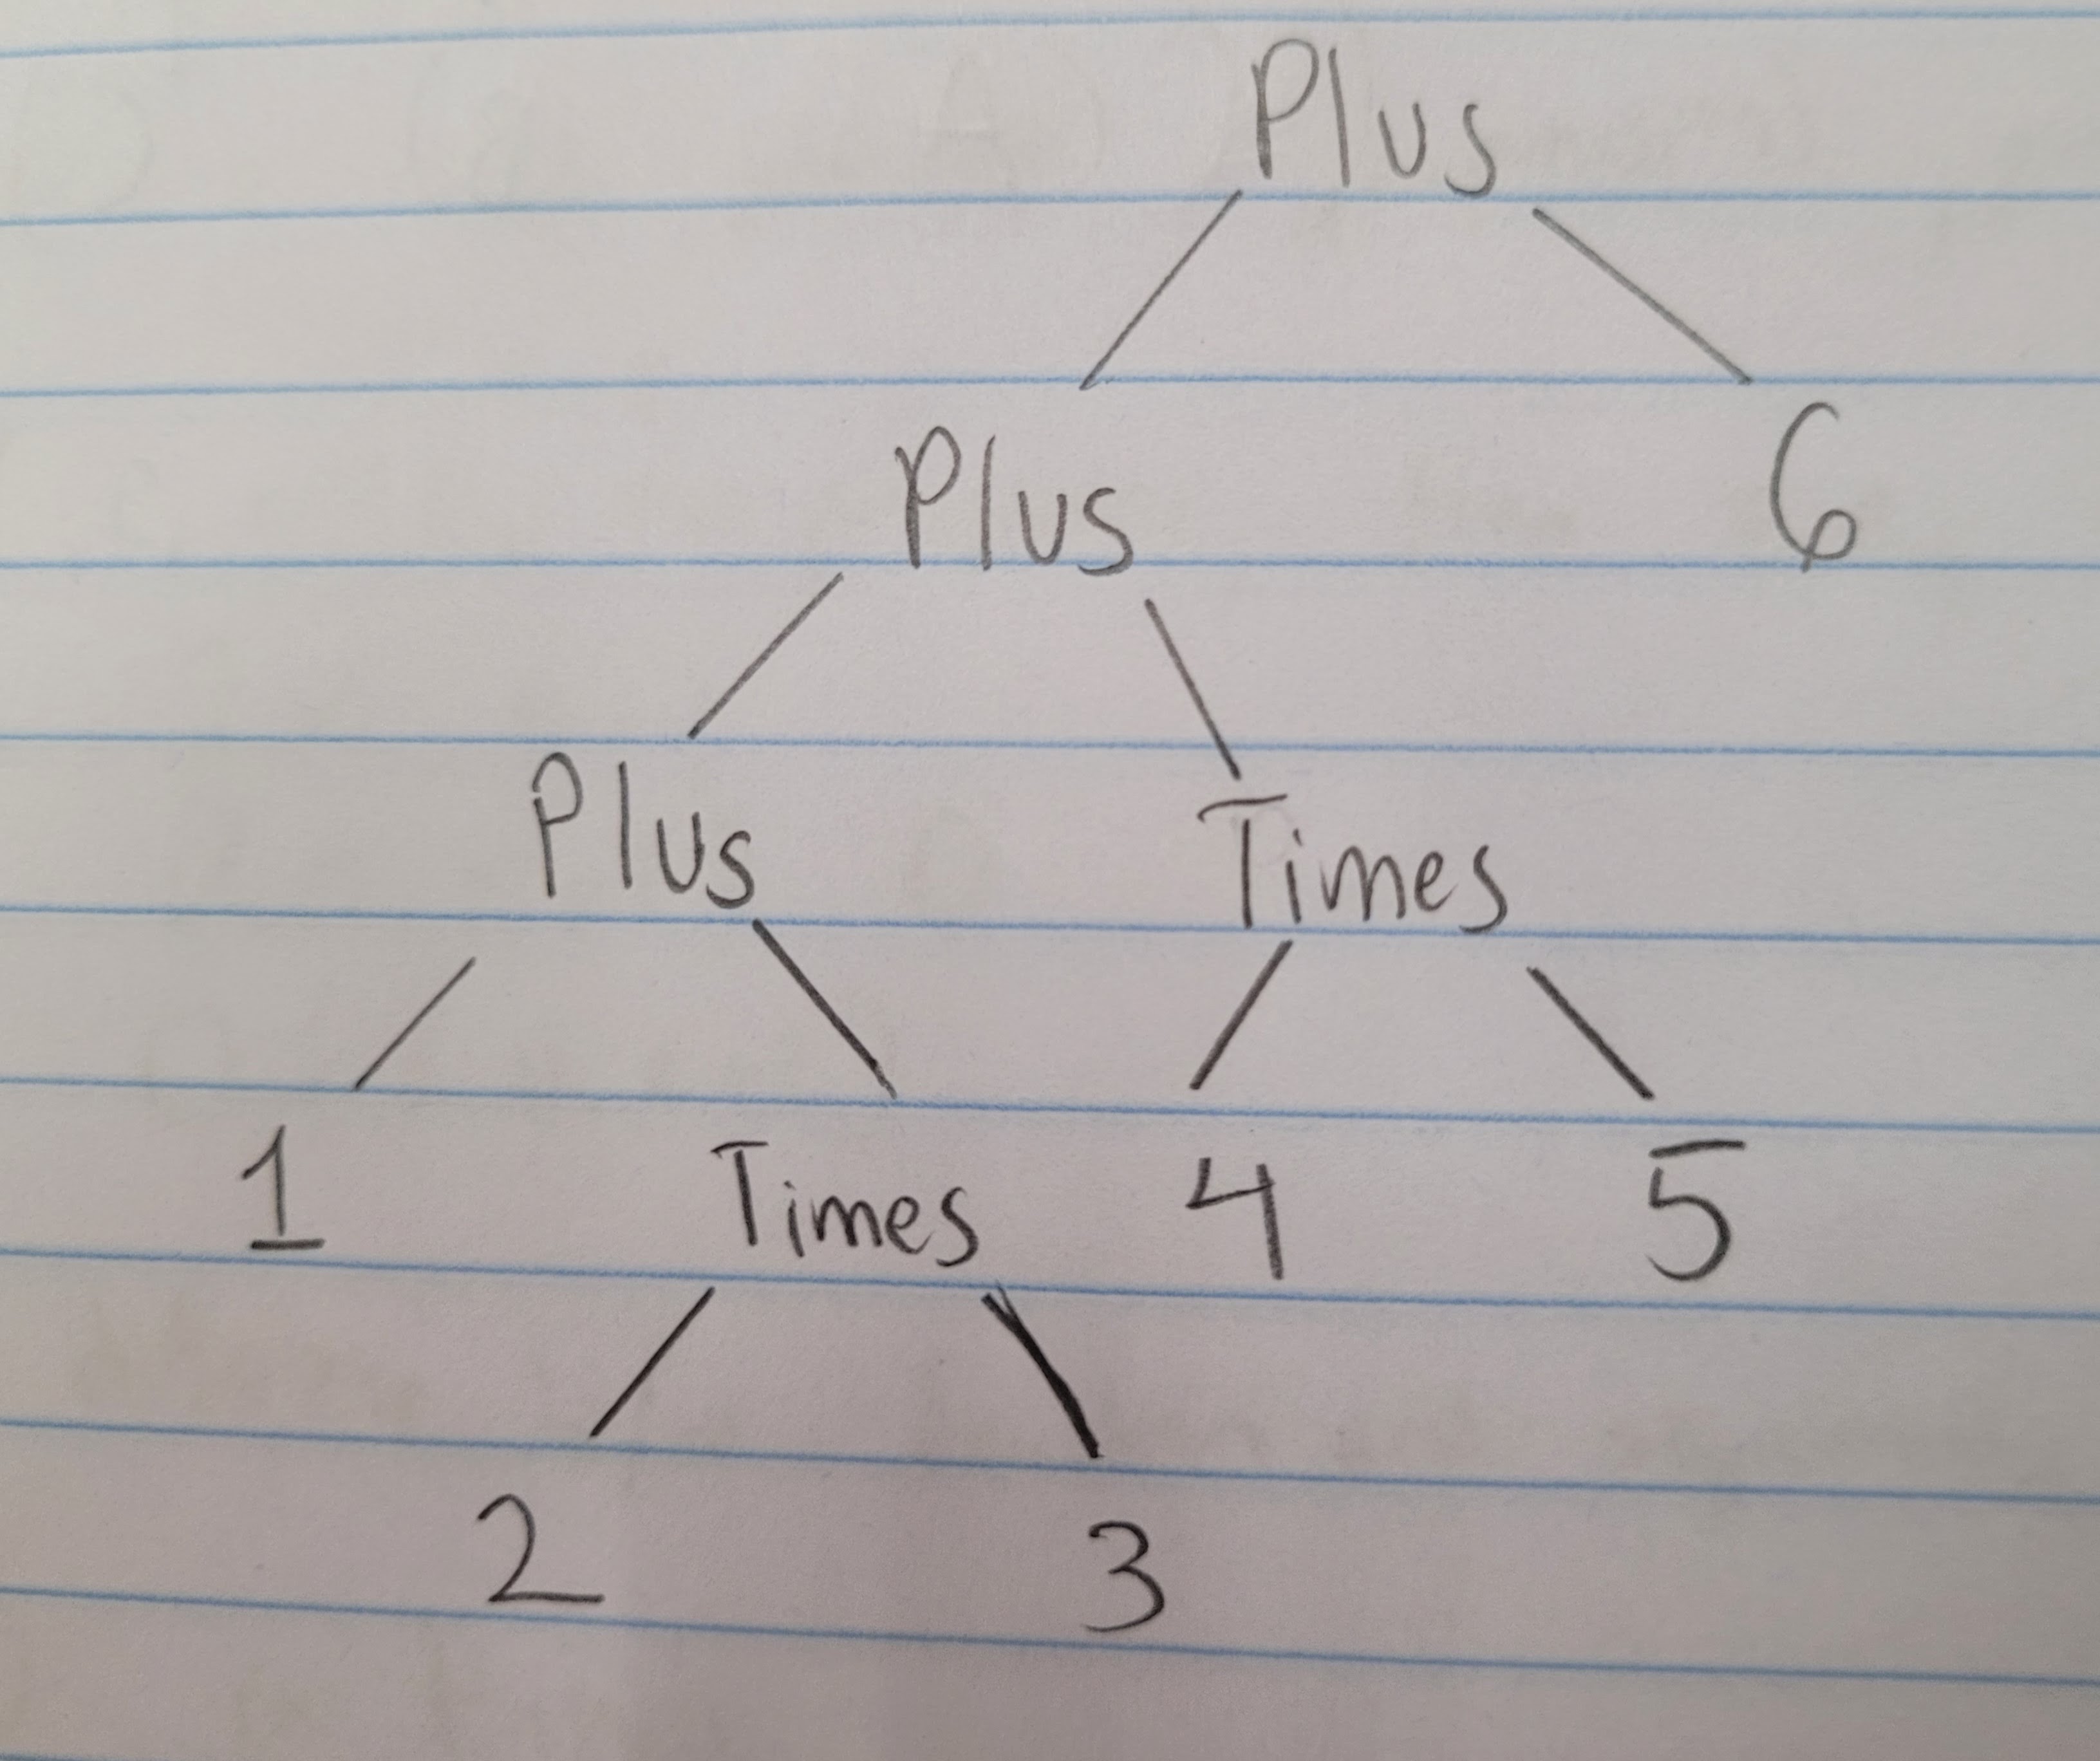 Plus
Plus 6
Plus Times
1 Times 4 5
2 3